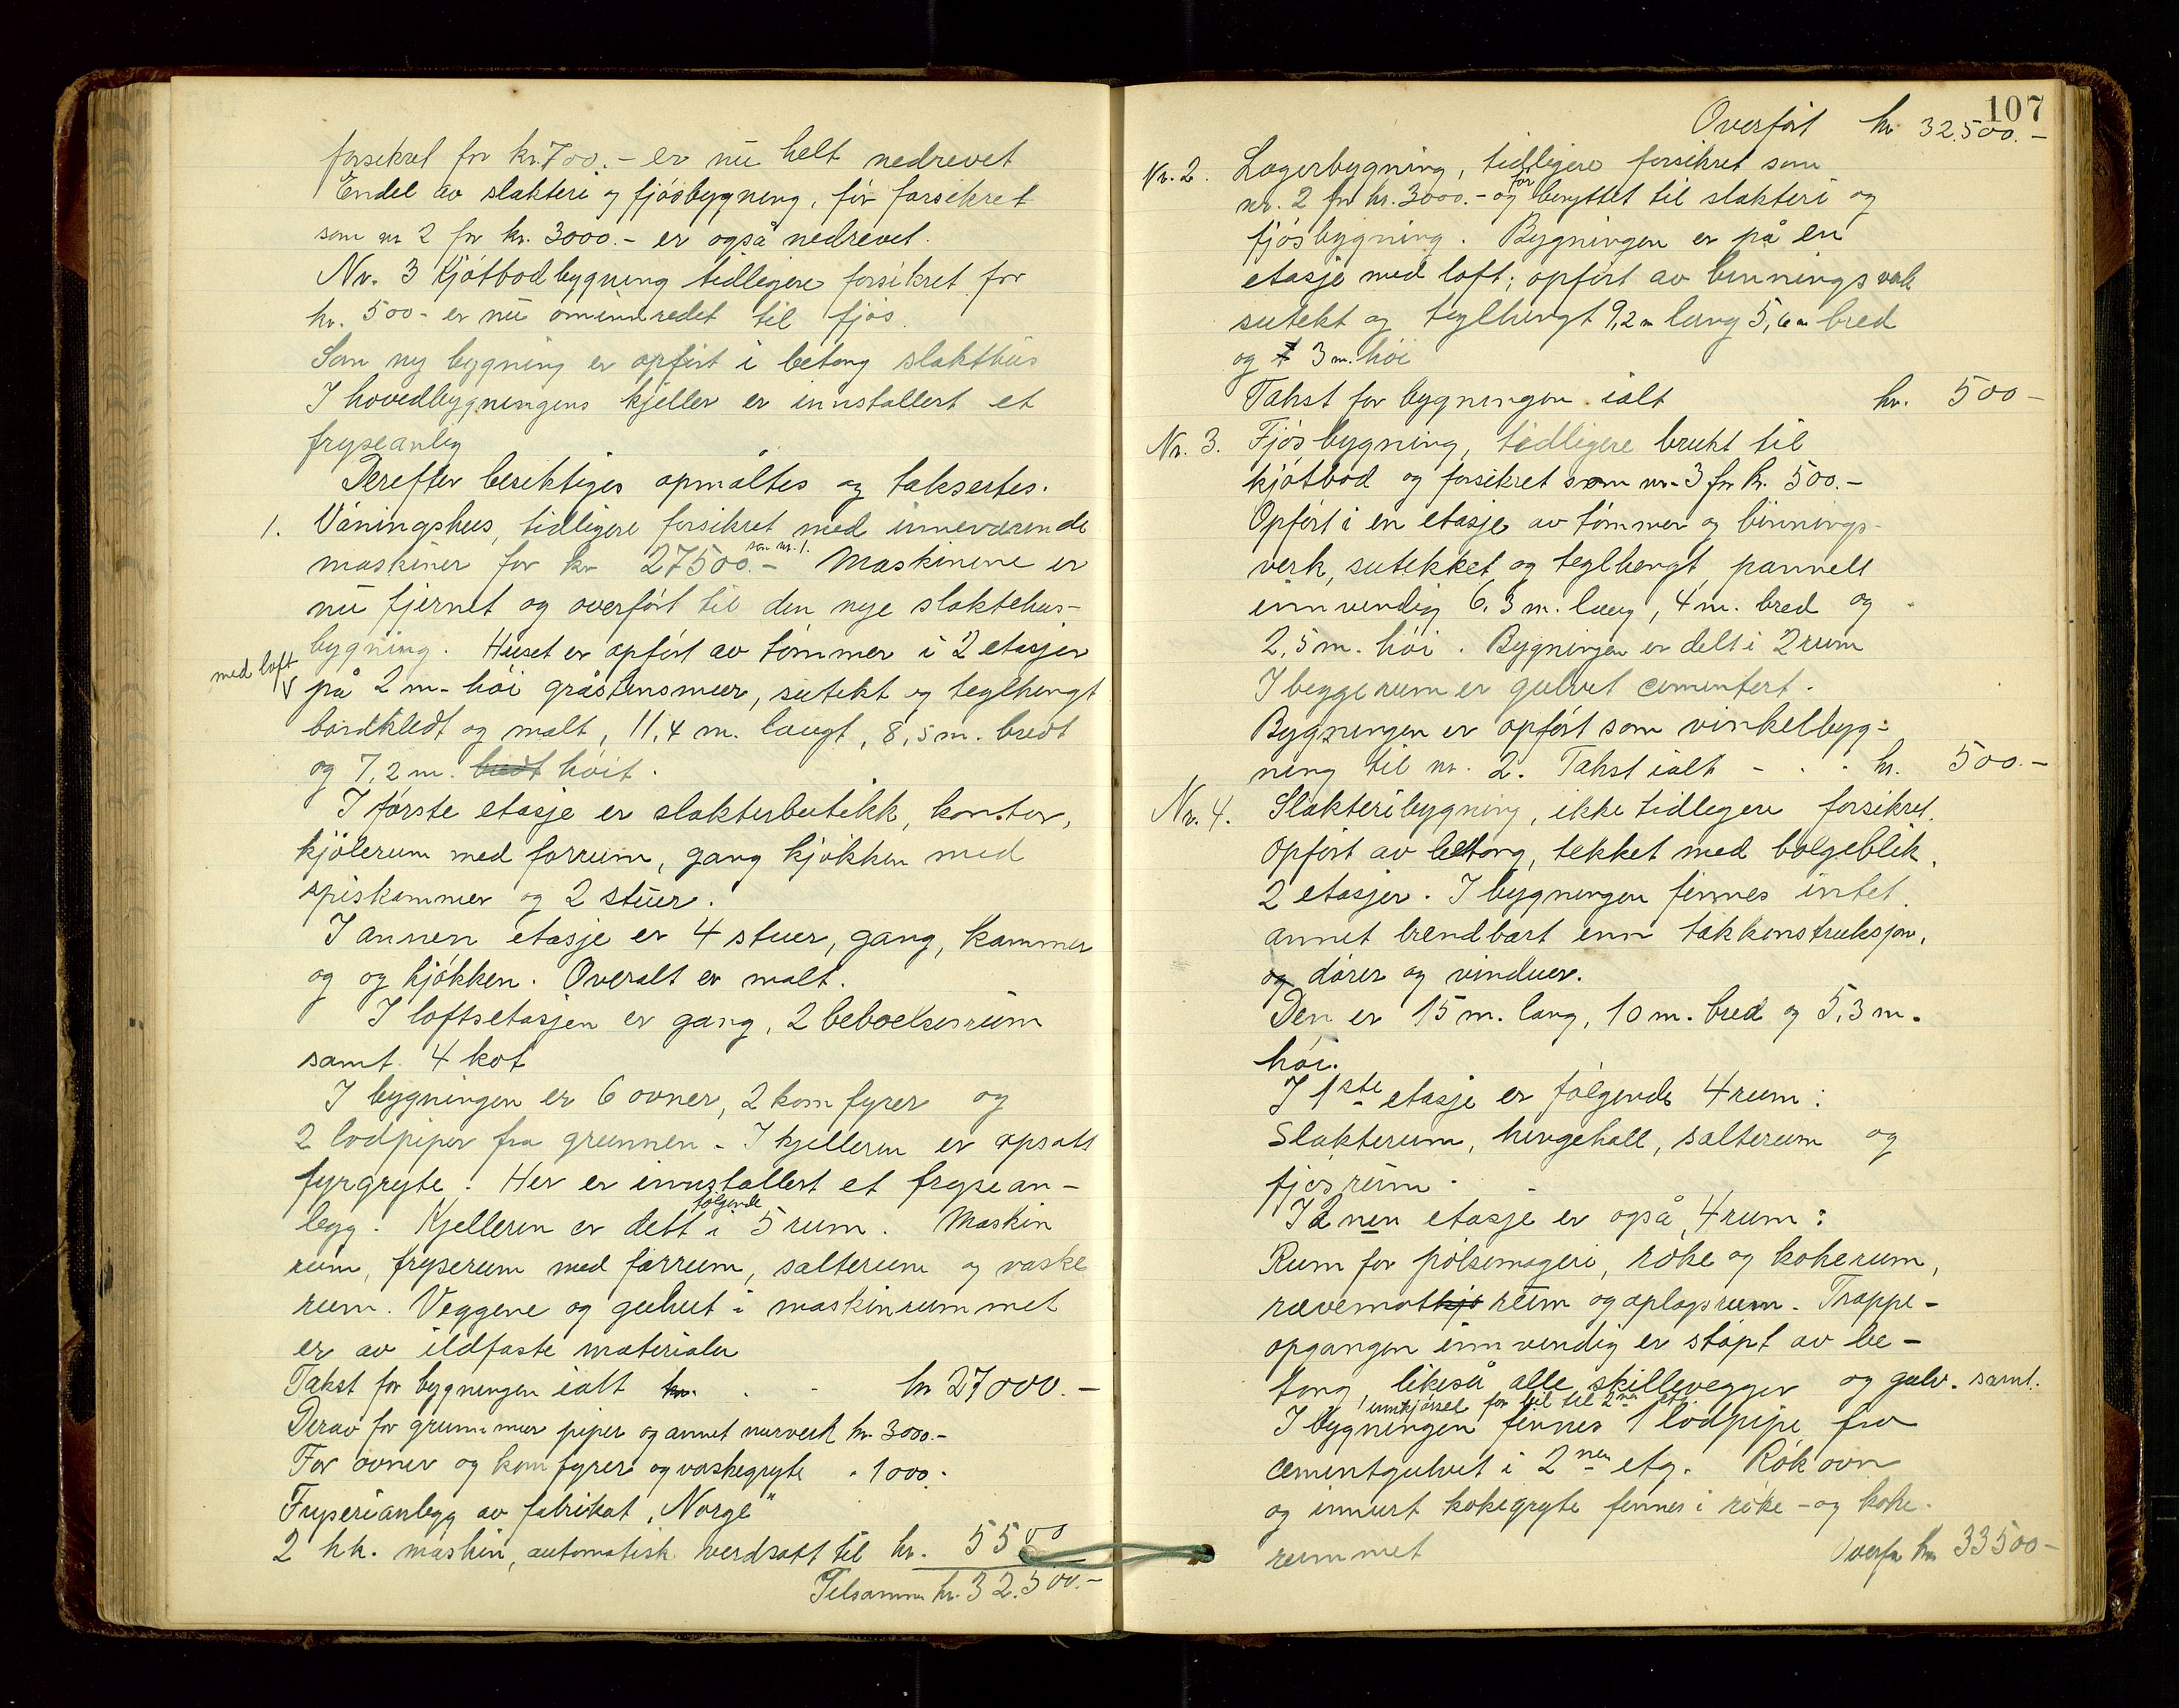 forsikret for kr. 700.- er nu helt nedrevet
Endel av slakteri og fjósbygning, fór forsikret
som nr 2 for kr. 3000.- er også nedrevet.
Nr. 3 Kjótbodbygning tidligere forsikret for
kr. 500- er nu ominnredet til fjós.
Som ny bygning er opfórt i betong slakthus
I hovedbygningens kjeller er innstallert et
fryseanleg
Derefter besiktiges opmåltes og taksertes.
1. Våningshus, tidligere forsikret med inneværende
maskiner for kr 27500.- som nr. 1. Maskinene er
nu fjernet og overfórt til den nye slaktehus-
bygning. Huset er opfórt av tómmer i 2 etasjer
med loft
på 2 m. hói gråstensmur, sutekt og teglhengt
bordkledt og malt, 11,4 m. langt, 8,5 m. bredt
og 7,2 m. bredt hóit.
I fórste etasje er slakterbutikk, kontor,
kjólerum med forrum, gang kjókken med
spiskammer og 2 stuer.
I annen etasje er 4 stuer, gang, kammer
og og kjókken. Overalt er malt.
I loftsetasjen er gang, 2 beboelsesrum
samt 4 kot
I bygningen er 6 ovner, 2 komfyrer og
2 lodpiper fra grunnen. I kjelleren er opsatt
fyrgryte. Her er innstallert et frysean-
legg. Kjelleren er delt i fólgende 5 rum. Maskin
rum, fryserum med forrum, salterum og vaske
rum. Veggene og gulvet i maskinrummet
er av ildfaste materialer
Takst for bygningen ialt kr. . - kr 27000.-
Derav for grunnmur piper og annet murverk kr 3000.-
For ovner og komfyrer og vaskegryte " 1000.-
Fryserianlegg av fabrikat "Norge"
2 hk. maskin, automatisk verdsatt til kr. 5500
Tilsammen kr. 32.500.-
107
Overfórt kr 32.500.-
Nr. 2. Lagerbygning, tidligere forsikret som
nr. 2 for kr. 3000.- og fór benyttet til slakteri og
fjósbygning. Bygningen er på en
etasje med loft; opfórt av binningsverk
sutekt og teglhengt 9,2 m lang 5,6 m bred
og 3 m. hói
Takst for bygningen ialt kr. 500-
Nr. 3. Fjósbygning, tidligere brukt til
kjótbod og forsikret som nr. 3 for kr. 500.-
Opfórt i en etasje av tómmer og binnings-
verk, sutekket og teglhengt, pannell
innvendig 6,3 m. lang, 4 m. bred og
2,5 m. hói. Bygningen er delt i 2 rum
I begge rum er gulvet cementert.
Bygningen er opfórt som vinkelbyg-
ning til nr. 2. Takst ialt - . . kr. 500.-
Nr. 4. Slakteribygning, ikke tidligere forsikret.
Opfórt av betong, tekket med bólgeblik,
2 etasjer. I bygningen finnes intet
annet brendbart enn takkonstruksjon,
og dórer og vinduer.
Den er 15 m. lang, 10 m. bred og 5,3 m.
hói.
I 1ste etasje er fólgende 4 rum:
Slakterum, hengehall, salterum og
fjósrum.
I 2nen etasje er også 4 rum:
Rum for pólsemageri, róke og kokerum,
revematkjó rum og oplagsrum. Trappe-
opgangen innvendig er stópt av be-
tong, likeså alle skillevegger og gulv. samt.
innkjórsel for bil til 2nen etg.
I bygningen finnes 1 lodpipe fra
cementgulvet i 2nen etg. Rókovn
og innmurt kokegryte finnes i róke- og koke-
rummet
Overfór kr 33500-